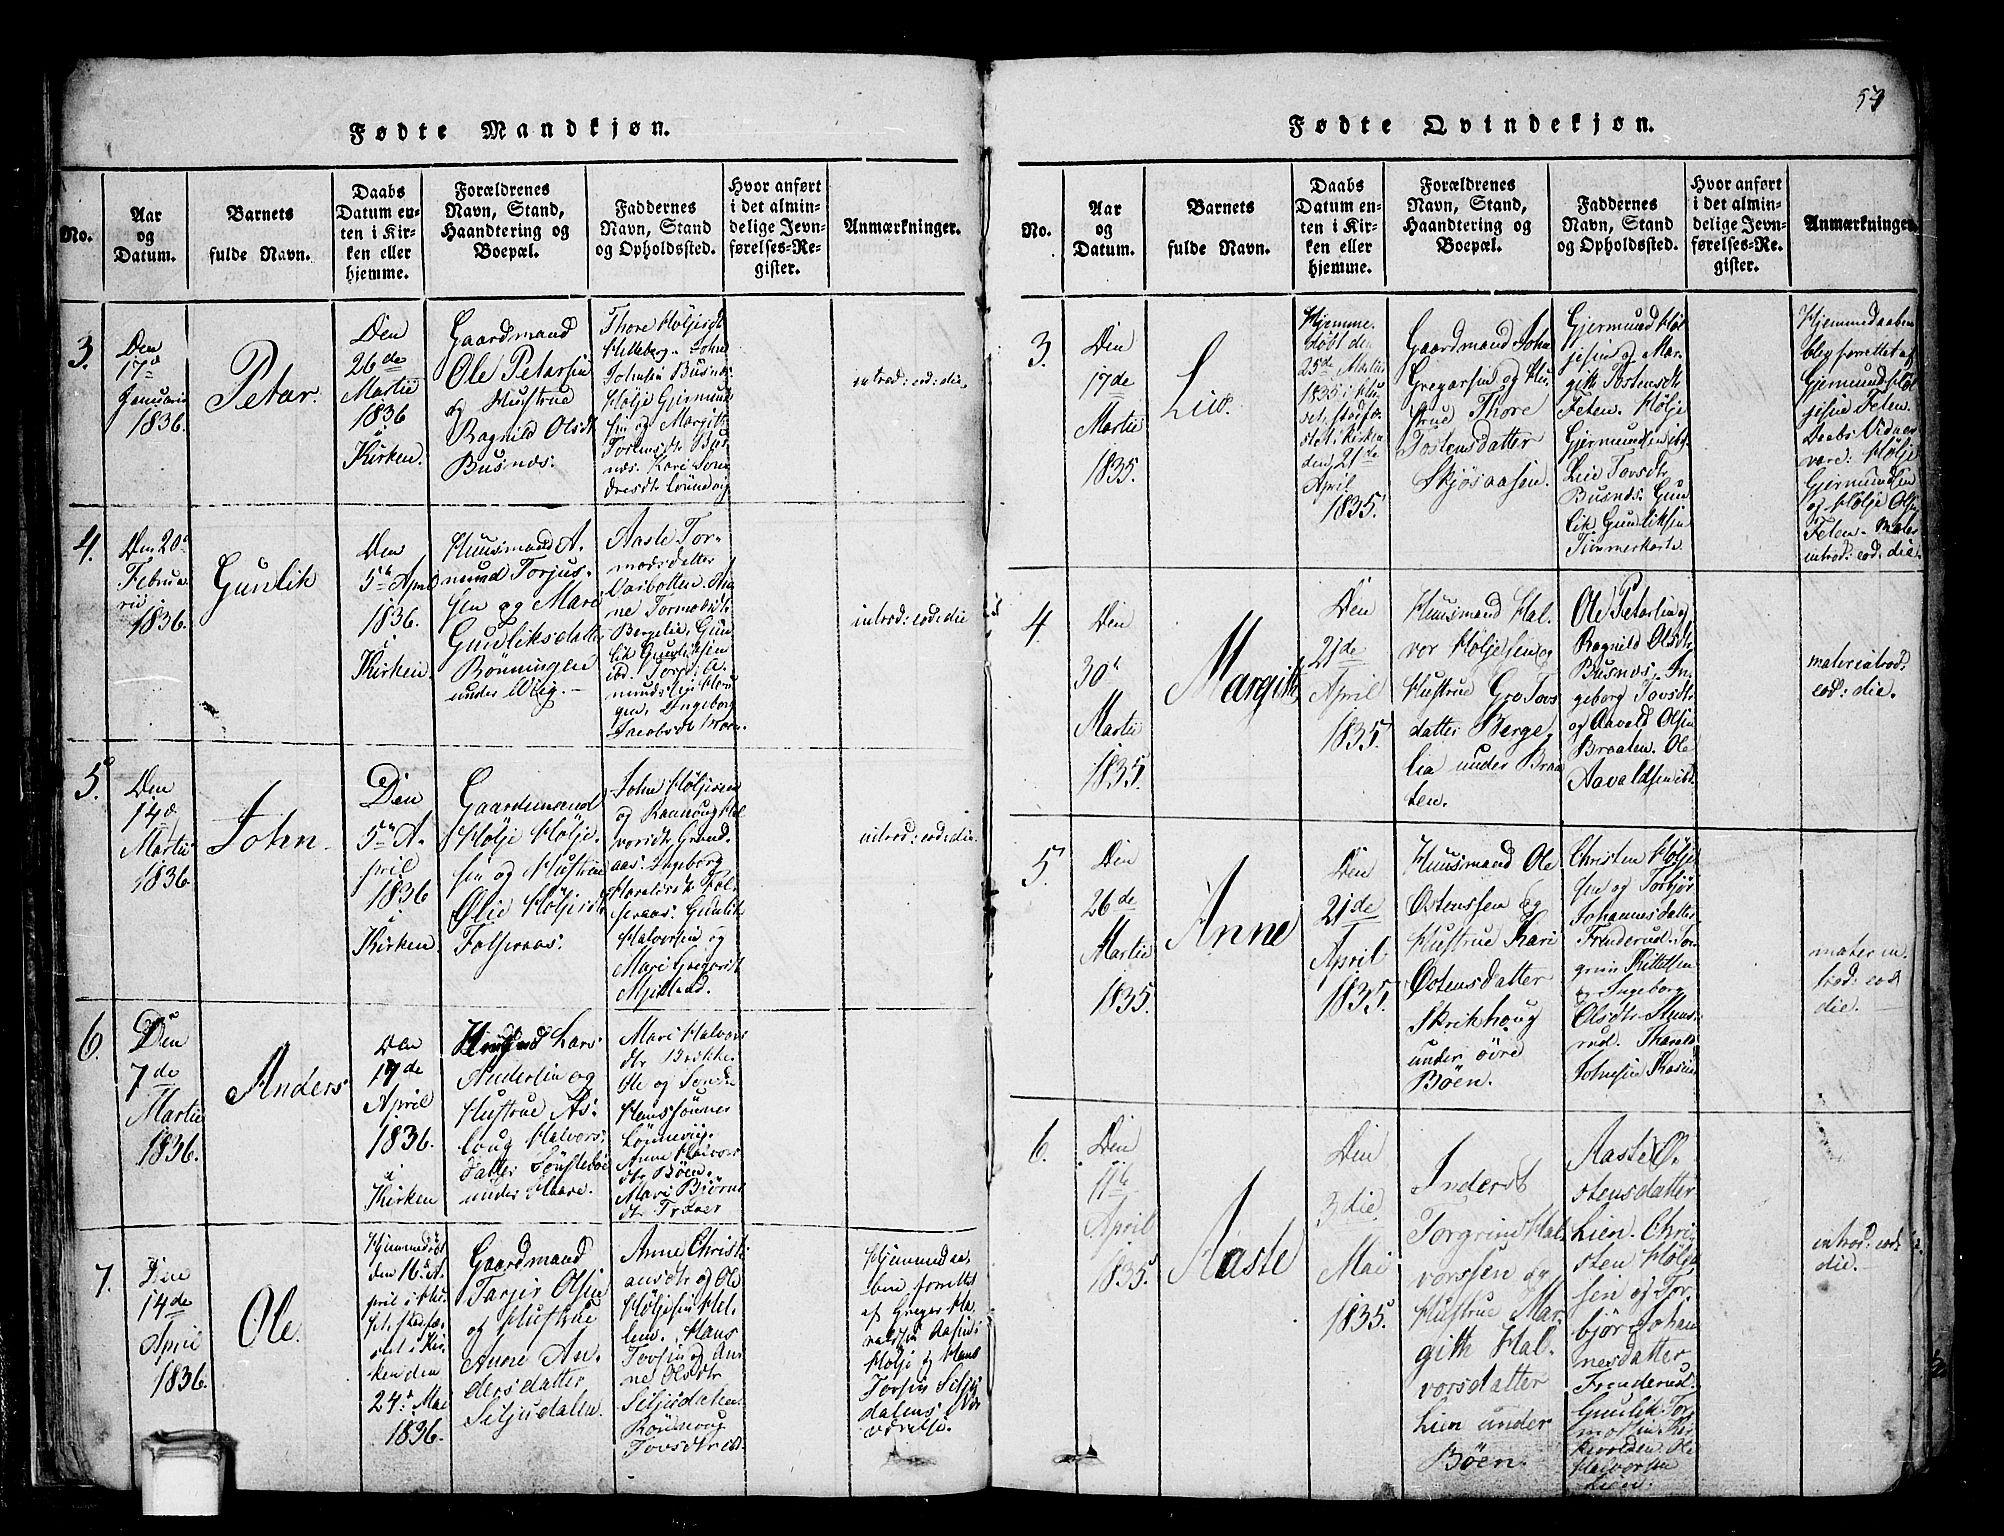 53
Fødte Mandkjøn.
No.
Aar
og
Datum.
Barnets
fulde Navn.
Daabs
Datum en-
ten i Kir-
ken eller
hjemme.
Forældrenes
Navn, Stand,
Haandtering og
Boepæl.
Faddernes
Navn, Stand
og Opholdssted.
Hvor anført
i det almin-
delige Jevn-
førelses-Re-
gister.
Anmærkninger.
3.
Den
17d
Januarii
1836.
Petar.
Den
26de
Martii
1836
i
Kirken.
Gaardmand
Ole Petarsen
og Hustrue
Ragnild Olsdt
Busnæs.
Thore Høljesdt
Helleberg. John
Johnsen Busnæs.
Hølje Gjermund-
sen og Margith
Torstensdt Bus-
næs. Kari Son-
dresdt Lønnevig
introd: eod: die.
4.
Den 20d
Februa-
rii
1836.
Gunlik
Den
5te April
1836.
i
Kirken.
Huusmand A-
mund Torjus-
sen og Mari
Gunliksdatter
Rønningen
under Wiig.
Aaste Tor-
modsdatter
Aa-
ne Tormodsdtr
Bergelie, Gun-
lik Gunliksen
ibd. Torjus A-
mundsen Hau-
gen, Ingeborg
Jacobsdt Moen.
introd: eod: die
5.
Den
14d
Martii
1836.
John.
Den
5te A-
pril
1836
i
Kirken.
Gaardmand
Hølje Hølje-
sen og Hustrue
Ølie Høljesdt
Folseraas.
John Høljesen
og Rannoug Hal-
vorsdt Grund-
aas. Ingeborg
Haraldsdt Fol-
seraas. Gunlik
Halvorsen og
Mari Gregorsdt
Mjelland.
introd: eod: die.
6.
Den
7de
Martii
1836.
Anders
Den
17de
April
1836.
i
Kirken
Lars
Andersen og
Hustrue As-
loug Halvors-
datter Sønstebøe
under Haave.
Mari Halvors
dtr Brekke.
Ole og Sond-
Hanssønner
Lønnevig.
Anne Halvors
dtr Bøen.
Mari Biørns
dtr Trævær
7.
Den
14de
April
1836.
Ole.
Hjemmedøbt
den 16d A-
pril i Hu-
set. Stedfæ-
stet i Kir-
ken den
24d Mai
1836.
Gaardmand
Tarjer Olsen
og Hustrue
Anne An-
dersdatter
Siljudalen.
Anne Christi-
ansdtr og Ole
Høljesen Hel-
len. Hans
Tovsen og An-
ne Olsdtr
Siljudalen.
Rønnoug
Tovsdtr ibd.
Hjemmedaa-
ben forrettet
af Gregar Ha-
raldsen Aasen.
Hølje og Hans
Tovsen Silju-
dalens
værelse.
Fødte Qvindekjøn.
No.
Aar
og
Datum.
Barnets
fulde Navn.
Daabs
Datum en-
ten i Kir-
ken eller
hjemme.
Forældrenes
Navn, Stand,
Haandtering og
Boepæl.
Faddernes
Navn, Stand
og Opholdssted.
Hvor anført
i det almin-
delige Jevn-
førelses-Re-
gister.
Anmærkninger.
3.
Den
17de
Martii
1835.
Liv.
Hjemme-
døbt den
25de Martii
1835 i Hu-
set, stadfæ-
stet i Kirken
den 21de
April
1835.
Gaardmand John
Gregarsen og Hu-
strue Thore
Tostensdatter
Skjøsaasen.
Gjermund Høl-
jesen og Mar-
gith Tostensdt
Feten. Hølje
Gjermundsen ibd.
Liv Tovsdtr
Busnæs. Gun-
lik Gunliksen
Timmerkaste
Hjemmedaaben
blev forrettet af
Gjermund Høl-
jesen Feten.
Daabs Vidner
vare: Hølje
Gjermundsen
og Hølje Olsen
Feten. Mater
introd: eod: die.
4.
Den
30te
Martii
1835.
Margith
Den
21de
April
1835.
Huusmand Hal-
vor Høljesen og
Hustrue Gro Tovs
datter Berge-
lia under Braa-
ten.
Ole Petarsen og
Ragnild Olsdt
Busnæs. In-
geborg Tovsdtr
og Aavald Olsen
Braaten. Ole
Aavaldsen ibd.
mater introd:
eod: die.
5.
Den
26de
Martii
1835.
Anne
Den
21de
April
1835.
Huusmand Ole
Østenssen og
Hustrue Kari
Østensdatter
Skrikhoug
under øvre
Bøen.
Christen Hølje-
sen og Torbjør
Johannesdatter
Frenderud. Tor-
grim Kittelsen
og Ingeborg
Olsdtr Stens-
rud. Tharald
Johnsen
mater in-
trod: eod
die.
6.
Den
11te
April
1835.
Aaste
Den
3die
Mai
1835.
Inderst
Torgrim Hal-
vorssen og
Hustrue Mar-
gith Hal-
vorsdatter
Lien under
Bøen.
Aaste Ø-
stensdatter
Lien. Chri-
sten Hølje-
sen og Tor-
bjør Johan-
nesdatter
Frenderud.
Gunlik Tor-
mosen Kir-
kevolden. Ole
Halvorsen
Lien.
introd: eod:
die.